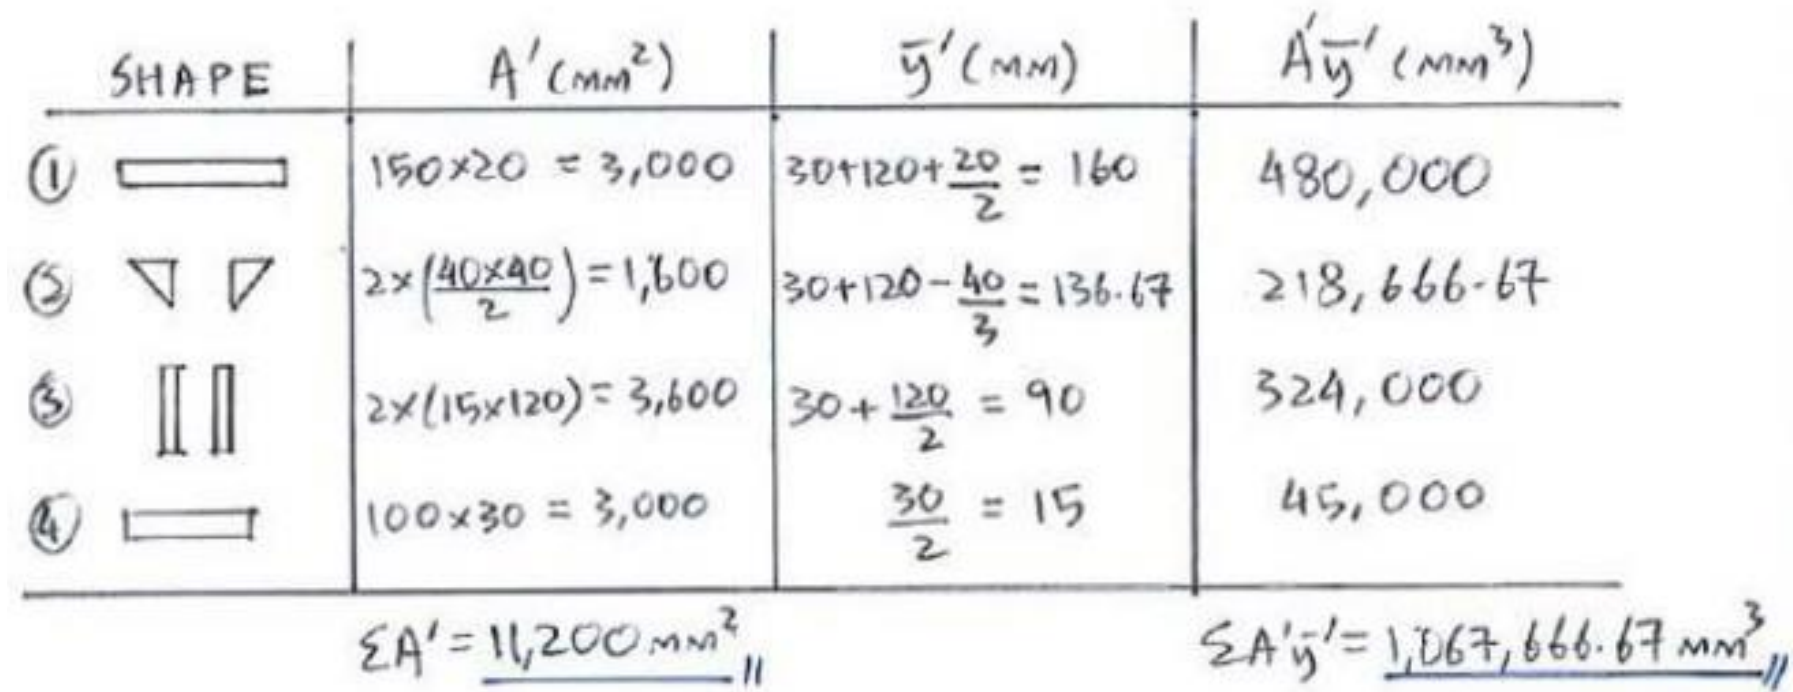 SHAPE A' (mm²) ȳ' (mm) A'ȳ' (mm³)
① 150×20 = 3,000 30+120+20/2 = 160 480,000
② 2×(40×40/2) = 1,600 30+120-40/3 = 136.67 218,666.67
③ 2×(15×120) = 3,600 30+120/2 = 90 324,000
④ 100×30 = 3,000 30/2 = 15 45,000
ΣA' = 11,200 mm² ΣA'ȳ' = 1,067,666.67 mm³